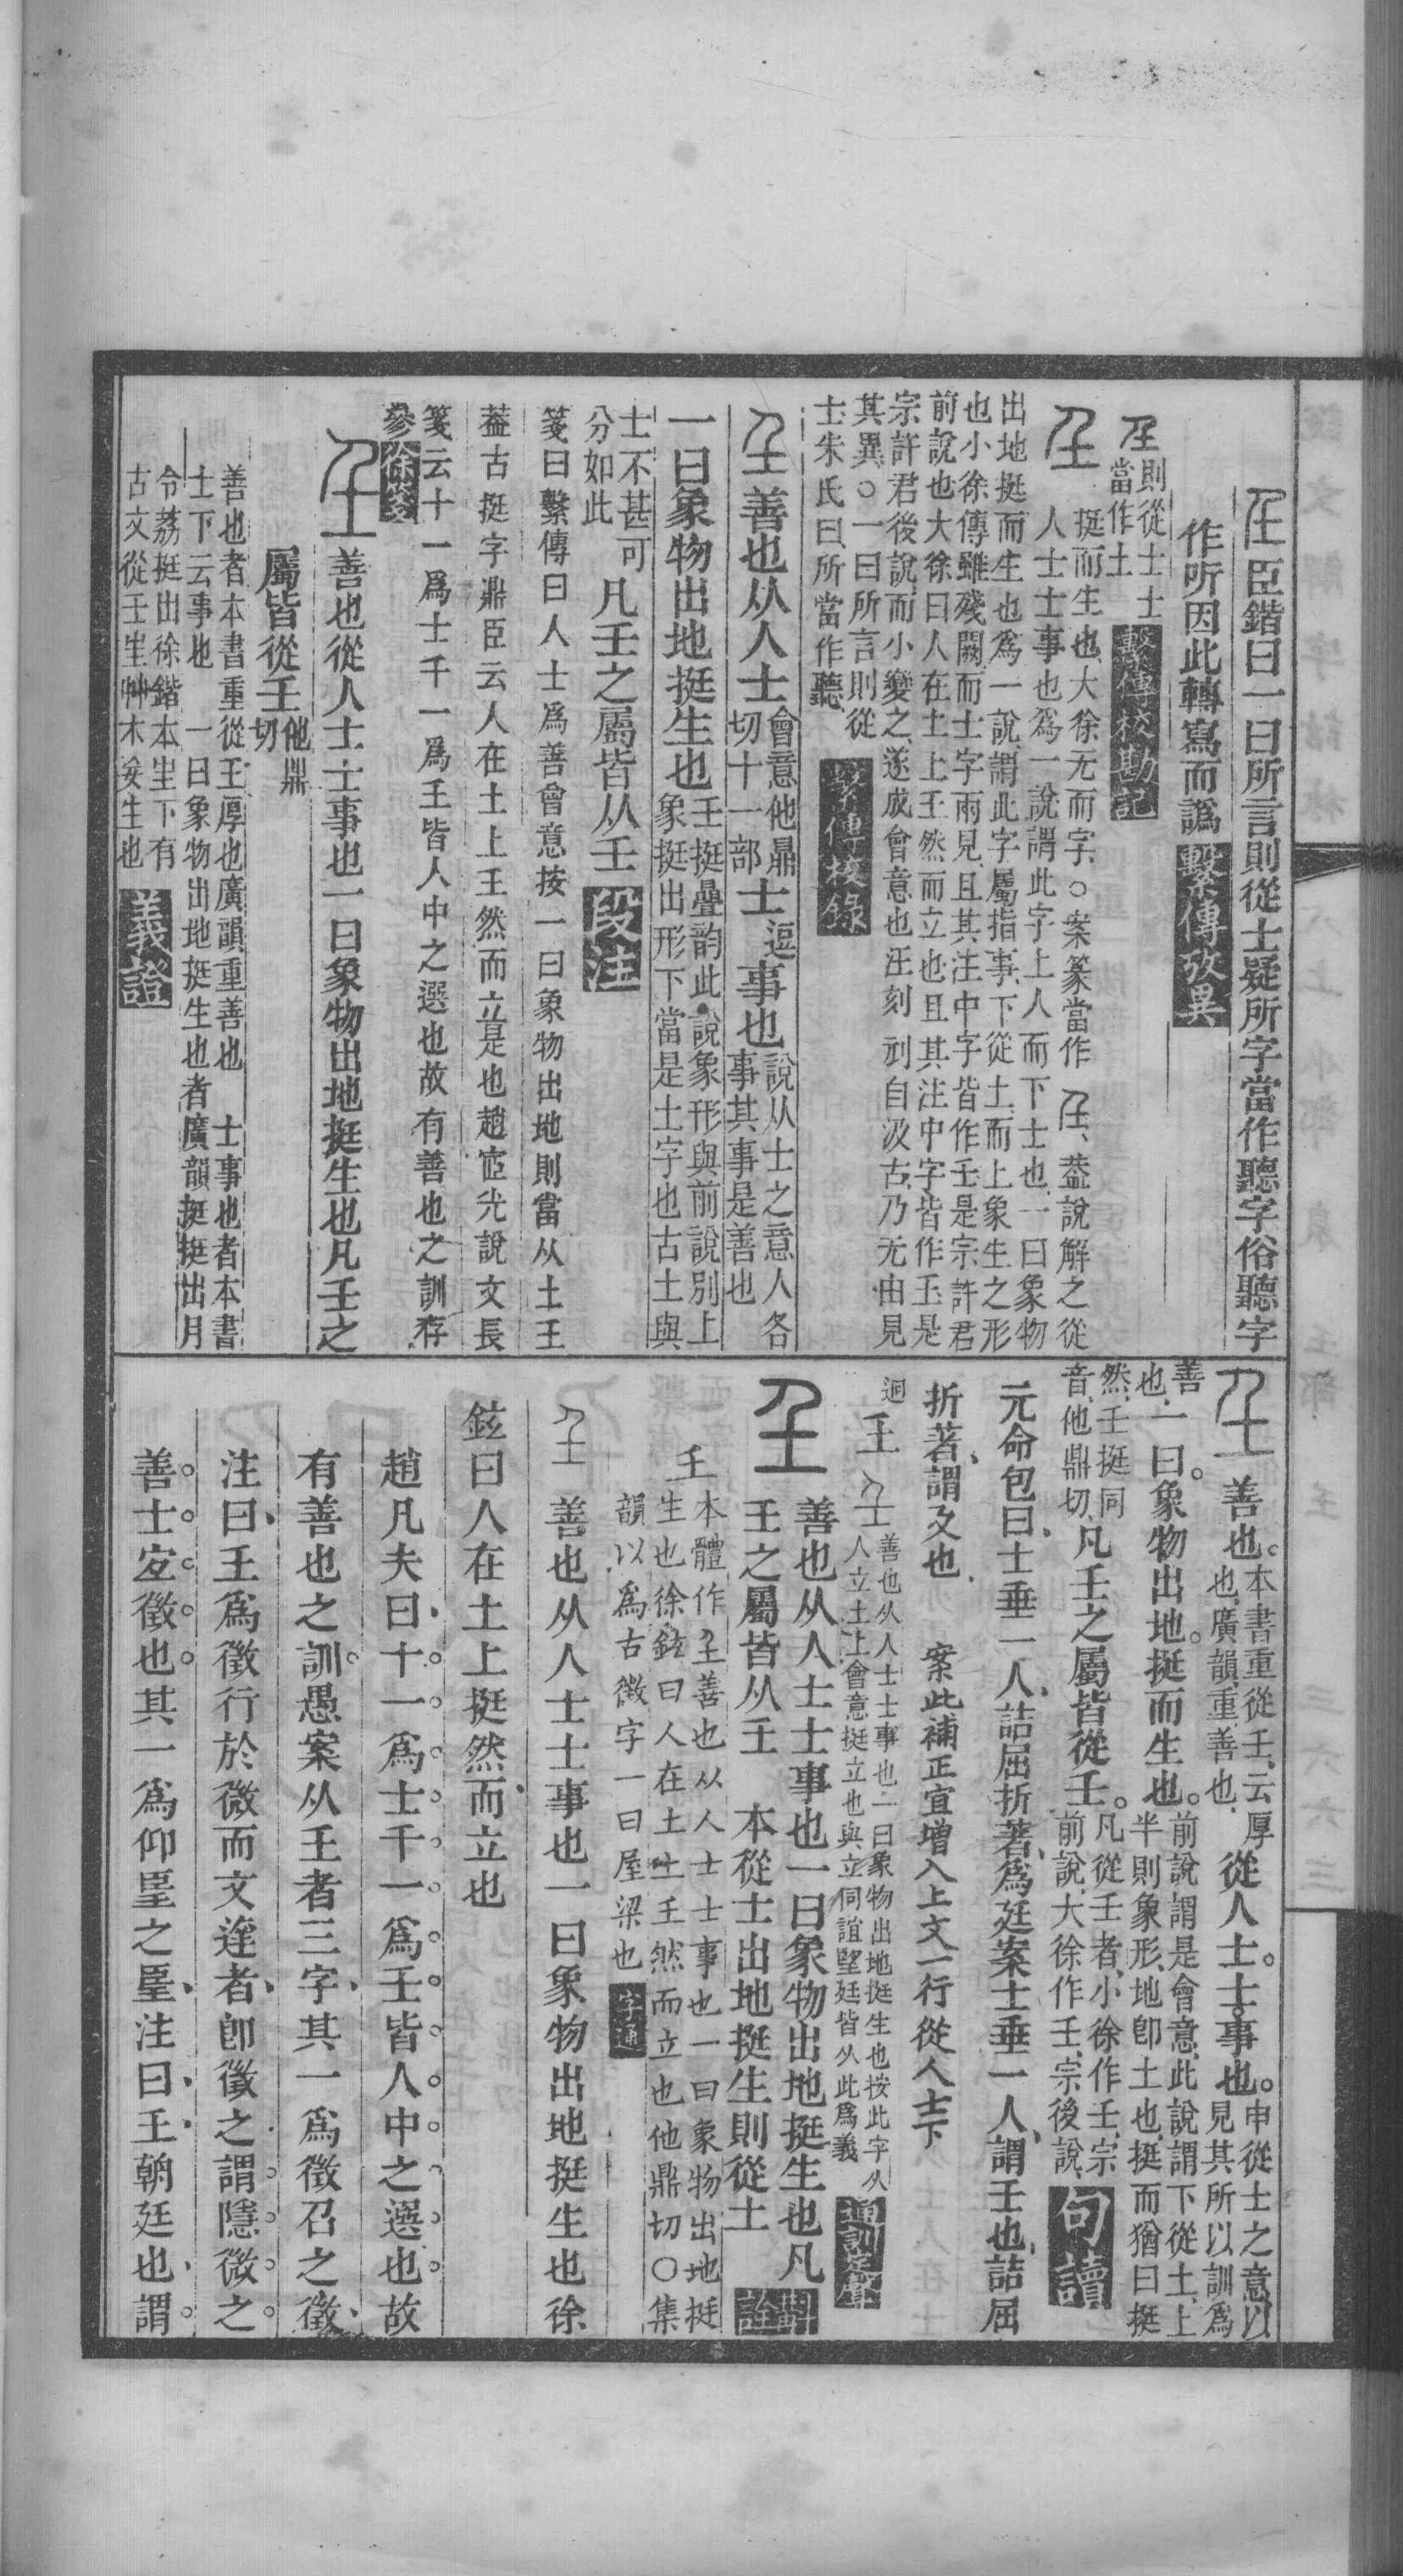 𡈼臣鍇曰一曰所言則從士疑所字當作聽字俗聽字
作听因此轉寫而譌繫傳攷異
𡈼則從士士
當作土繫傳校勘記
𡈼
挺而生也大徐无而字○案篆當作𡈼、葢說解之從
人士士事也爲一說謂此字上人而下士也、一曰象物
出地挺而生也爲一說謂此字屬指事、下從土、而上象生之形
也小徐傳雖殘闕而士字兩見、且其注中字皆作𡈼、是宗許君
前說也大徐曰人在土上𡈼然而立也且其注中字皆作𡈼、是
宗許君後說、而小變之、遂成會意也汪刻刓自汲古、乃无由見
其異○一曰所言則從
士朱氏曰、所當作聽、繫傳校錄
𡈼善也从人士會意他鼎
切十一部士逗事也說从士之意人各
事其事是善也
一曰象物出地挺生也𡈼挺疊韵此說象形與前說別上
象挺出形下當是土字也古土與
士不甚可
分如此凡𡈼之屬皆从𡈼段注
箋曰繫傳曰人士爲善會意按一曰象物出地則當从土𡈼
葢古挺字鼎臣云人在土上𡈼然而立是也趙宧光說文長
箋云十一爲士千一爲𡈼皆人中之選也故有善也之訓存
參徐箋
𡈼善也從人士士事也一曰象物出地挺生也凡𡈼之
屬皆從𡈼他鼎
切
善也者本書重從𡈼厚也廣韻重善也　士事也者本書
士下云事也　一曰象物出地挺生也者廣韻挺挺出月
令荔挺出徐鍇本㞷下有
古文從𡈼㞷艸木妄生也義證
𡈼善也。本書重從𡈼、云厚
也、廣韻、重、善也、從人士。士事也。申從士之意以
見其所以訓爲
善
也、一曰。象物出地。挺而生也。前說謂是會意、此說謂下從土、上
半則象形、地卽土也、挺而猶曰挺
然、𡈼挺同
音、他鼎切、凡𡈼之屬皆從𡈼。凡從𡈼者、小徐作𡈼、宗
前說、大徐作𡈼、宗後說、句讀
元命包曰、士垂一人、詰屈折著、爲廷案士垂一人、謂𡈼也、詰屈
折著、謂廴也、　案此補正宜增入上文一行從人士下
迥𡈼𡈼善也从人士士事也一曰象物出地挺生也按此字从
人立土上會意挺立也與立同誼朢廷皆从此爲義通訓定聲
𡈼善也从人士士事也一曰象物出地挺生也凡
𡈼之屬皆从𡈼　本從士出地挺生則從土斠詮
𡈼本體作𡈼善也从人士士事也一曰象物出地挺
生也徐鉉曰人在土上𡈼然而立也他鼎切○集
韻以爲古徵字一曰屋梁也字通
𡈼善也从人士士事也一曰象物出地挺生也徐
鉉曰人在土上挺然而立也
趙凡夫曰十一爲士千一爲𡈼皆人中之選也故
有善也之訓愚案从𡈼者三字、其一爲徵召之徵、
注曰、𡈼爲徵行於微而文達者、卽徵之謂隱微之
善士宐徵也其一爲仰朢之朢、注曰、𡈼、朝廷也、謂